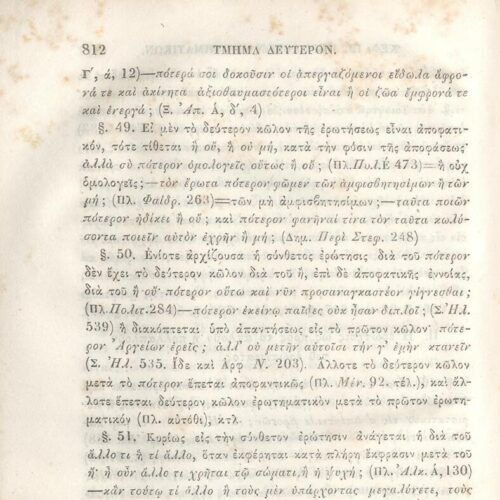 812 ΤΜΗΜΑ ΔΕΥΤΕΡΟΝ.
Γ΄, ά, 12)—πότερά σοι δοκοῦσιν οἱ ἀπεργαζόμενοι εἴδωλα ἄφρο-
νά τε καὶ ἀκίνητα ἀξιοθαυμαστότεροι εἶναι ἢ οἱ ζῶα ἔμφρονά τε
καὶ ἐνεργά; (Ξ. Ἀπ. Ά, δ΄, 4)
§. 49. Εἰ μὲν τὸ δεύτερον κῶλον τῆς ἐρωτήσεως εἶναι ἀποφατι-
κόν, τότε τίθεται ἢ οὔ, ἢ οὐ μή, κατὰ τὴν φύσιν τῆς ἀποφάσεως·
ἀλλὰ σὺ πότερον ὁμολογεῖς οὕτως ἢ οὔ; (Πλ. Πολ. Έ 473)=ἢ οὐχ
ὁμολογεῖς;—τὸν ἔρωτα πότερον φῶμεν τῶν ἀμφισβητησίμων ἢ τῶν
μή; (Πλ. Φαῖδρ. 263)=τῶν μὴ ἀμφισβητησίμων;—ταῦτα ποιῶν
πότερον ἠδίκει ἢ οὔ; καὶ πότερον φανῆναί τινα τὸν ταῦτα κωλύ-
σοντα ποιεῖν αὐτὸν ἐχρῆν ἢ μή; (Δημ. Περὶ Στεφ. 248)
§. 50. Ἐνίοτε ἀρχίζουσα ἡ σύνθετος ἐρώτησις διὰ τοῦ πότερον
δὲν ἔχει τὸ δεύτερον κῶλον διὰ τοῦ ἤ, ἐπὶ δὲ ἀποφατικῆς ἐννοίας,
διὰ τοῦ ἢ οὔ· πότερον οὕτω καὶ νῦν προσαναγκαστέον γίγνεσθαι;
(Πλ. Πολιτ. 284)—πότερον ἐκείνῳ παῖδες οὐκ ἦσαν διπλοῖ; (Σ. Ἠλ.
539) ἢ διακόπτεται ὑπὸ ἀπαντήσεως εἰς τὸ πρῶτον κῶλον· πότε-
ρον Ἀργείων ἐρεῖς; ἀλλ' οὐ μετῆν αὐτοῖσι τήν γ' ἐμὴν κτανεῖν
(Σ. Ἠλ. 535. Ἴδε καὶ Ἀρφ Ν. 203). Ἄλλοτε τὸ δεύτερον κῶλον
μετὰ τὸ πότερον ἕπεται ἀποφαντικῶς (Πλ. Μέν. 92. τέλ.), καὶ ἄλ-
λοτε ἕπεται δεύτερον κῶλον ἐρωτηματικὸν μετὰ τὸ πρῶτον ἐρωτη-
ματικόν (Πλ. αὐτόθι), κτλ
§. 51. Κυρίως εἰς τὴν σύνθετον ἐρώτησιν ἀνάγεται ἡ διὰ τοῦ
ἄλλο τι ἢ τί ἄλλο, ὅταν ἐκφέρηται κατὰ πλήρη ἔκφρασιν μετὰ τοῦ
ἤ· ἢ οὖν ἄλλο τι χρῆται τῷ σώματι ἢ ἡ ψυχή; (Πλ. Ἀλκ. Ά, 130)
—κἂν τούτῳ τί ἄλλο ἢ τοὺς μὲν ὑπάρχοντας μεγαλύνετε, τοὺς